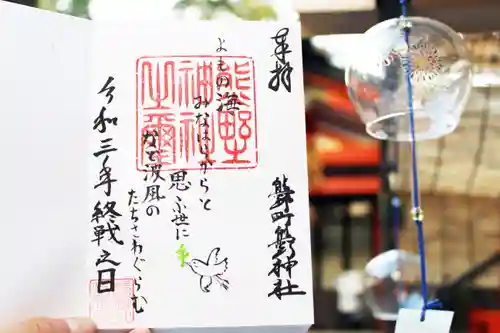 奉拝
熊野町熊野神社
熊野
神社
之璽
よもの海
みなはらからと
思ふ世に
など波風の
たちさわぐらむ
令和三年 終戦之日